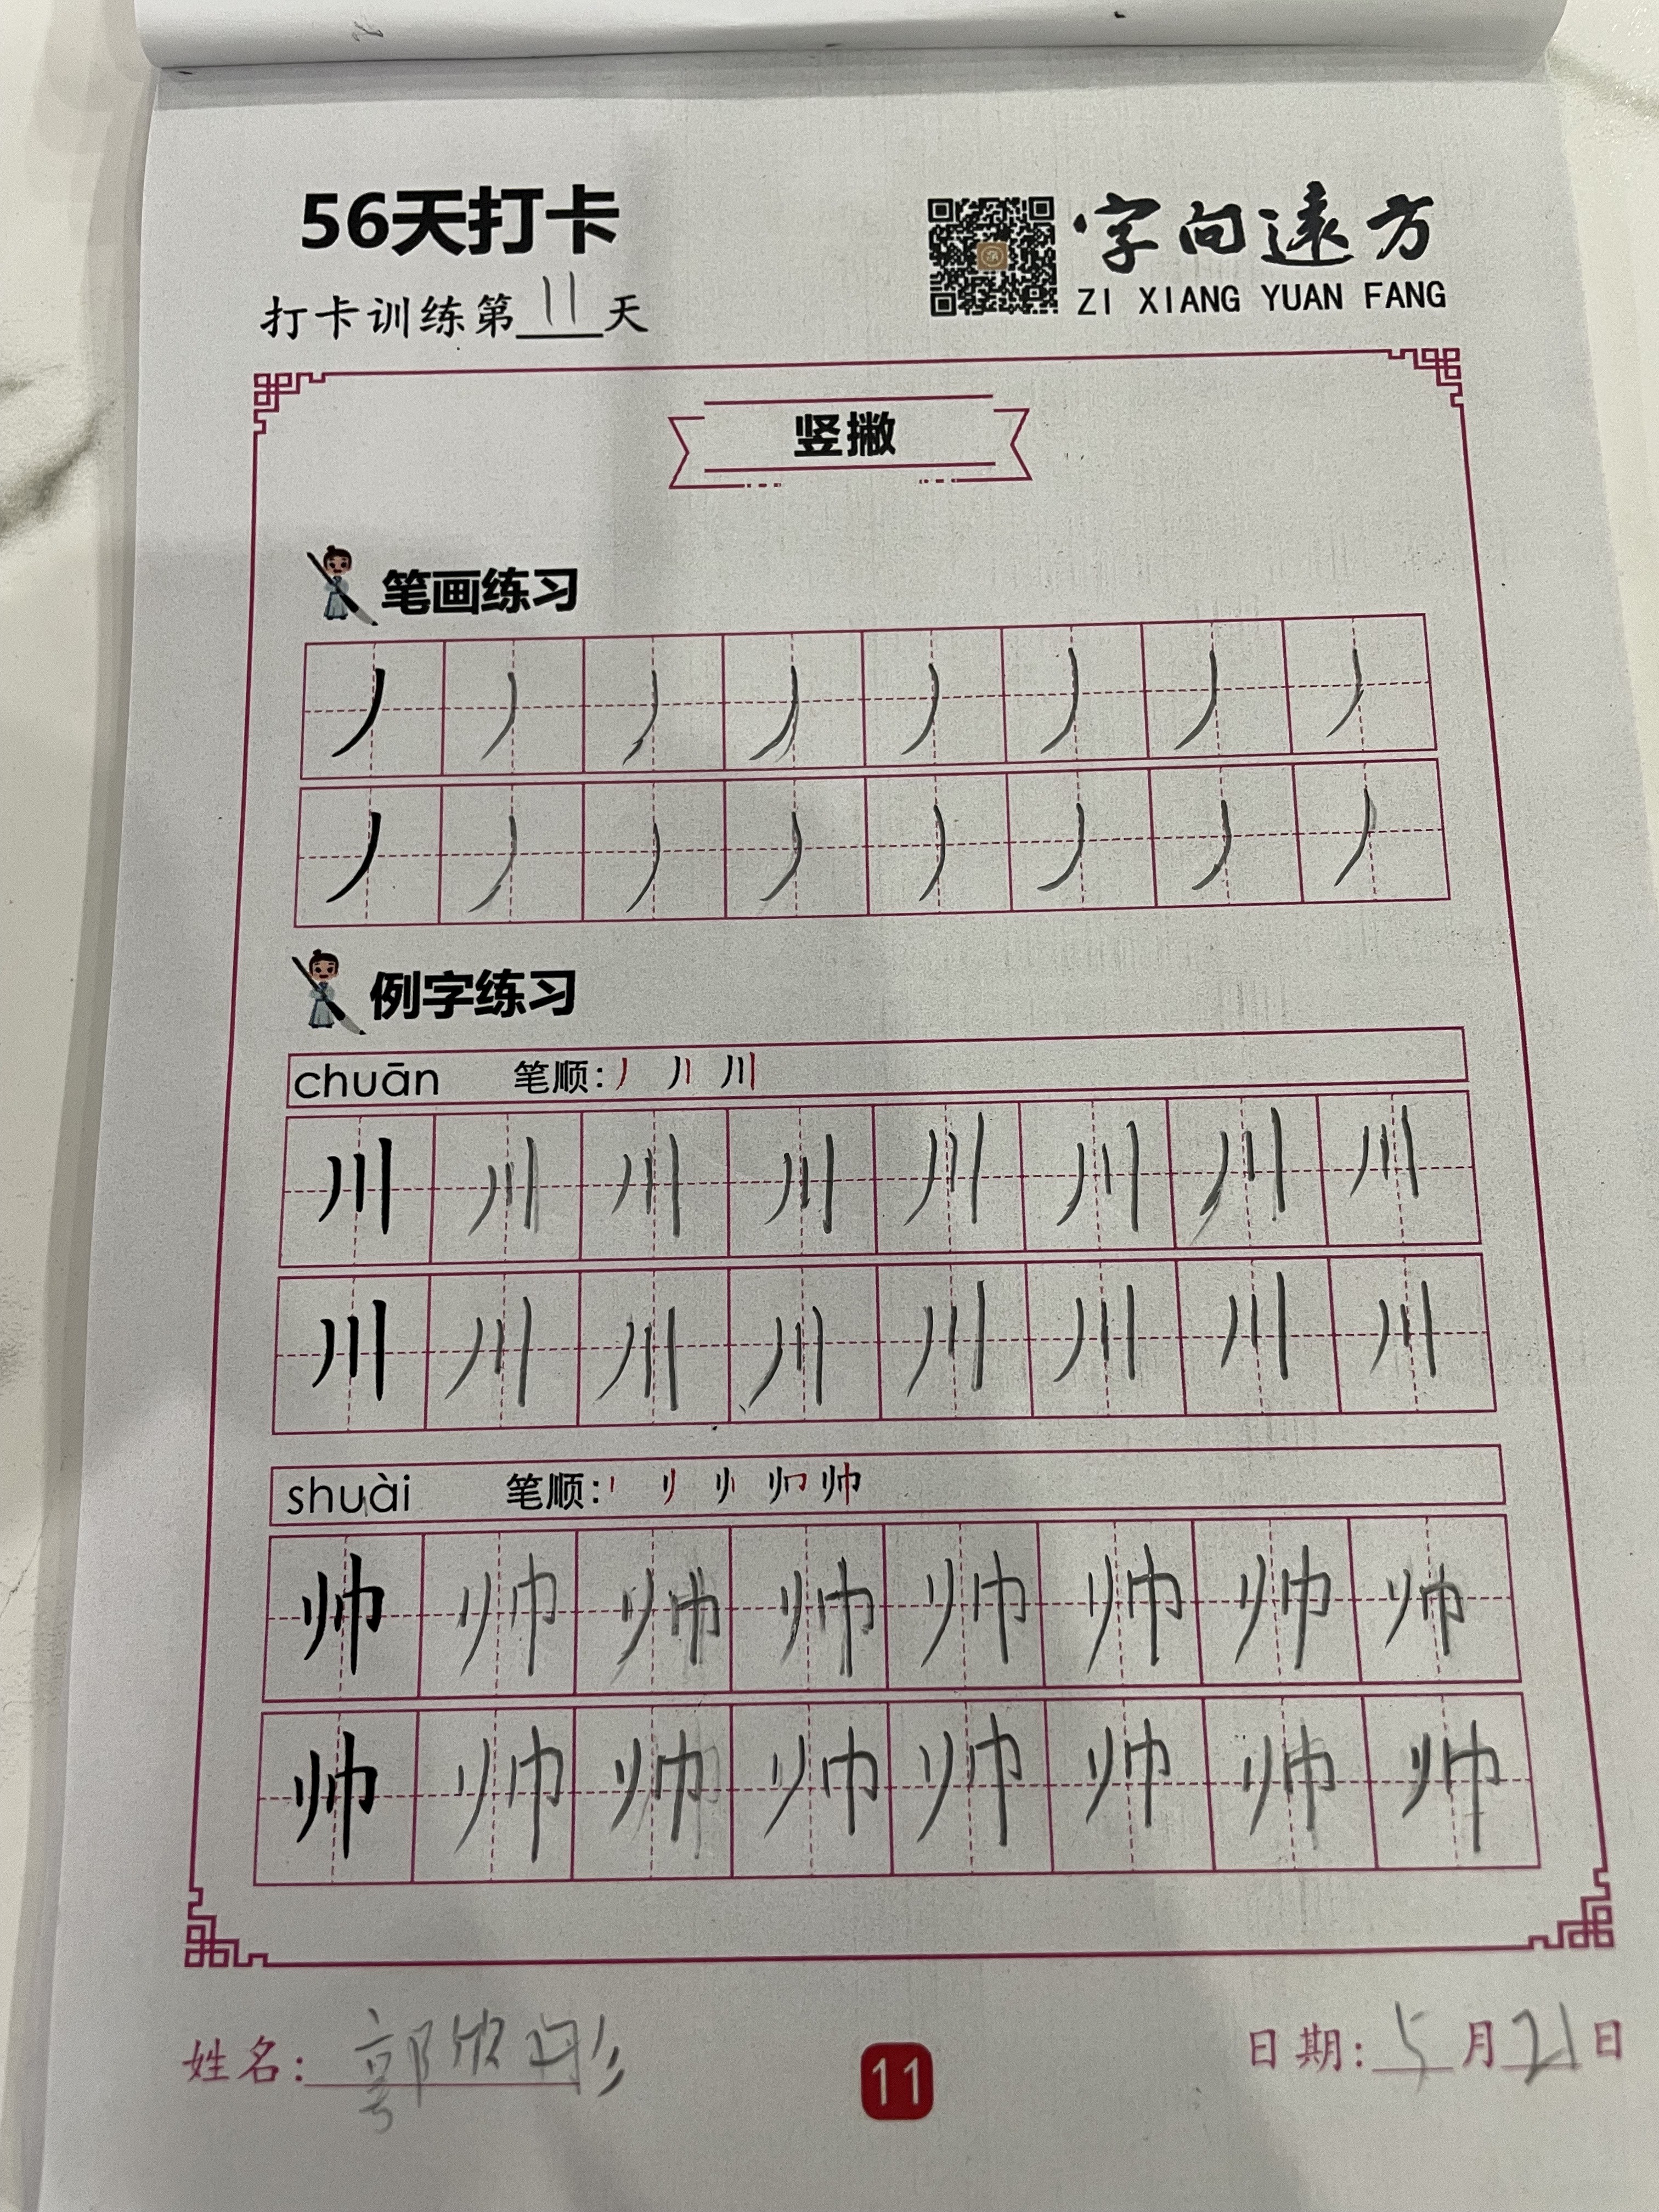 56天打卡
字向遠方
ZI XIANG YUAN FANG
打卡训练第11天
竖撇
笔画练习
丿 丿 丿 丿 丿 丿 丿 丿
丿 丿 丿 丿 丿 丿 丿 丿
例字练习
chuān 笔顺:
川 川 川 川 川 川 川 川
川 川 川 川 川 川 川 川
shuài 笔顺:
帅 帅 帅 帅 帅 帅 帅 帅
帅 帅 帅 帅 帅 帅 帅 帅
姓名: 郭欣彤
11
日期: 5月21日